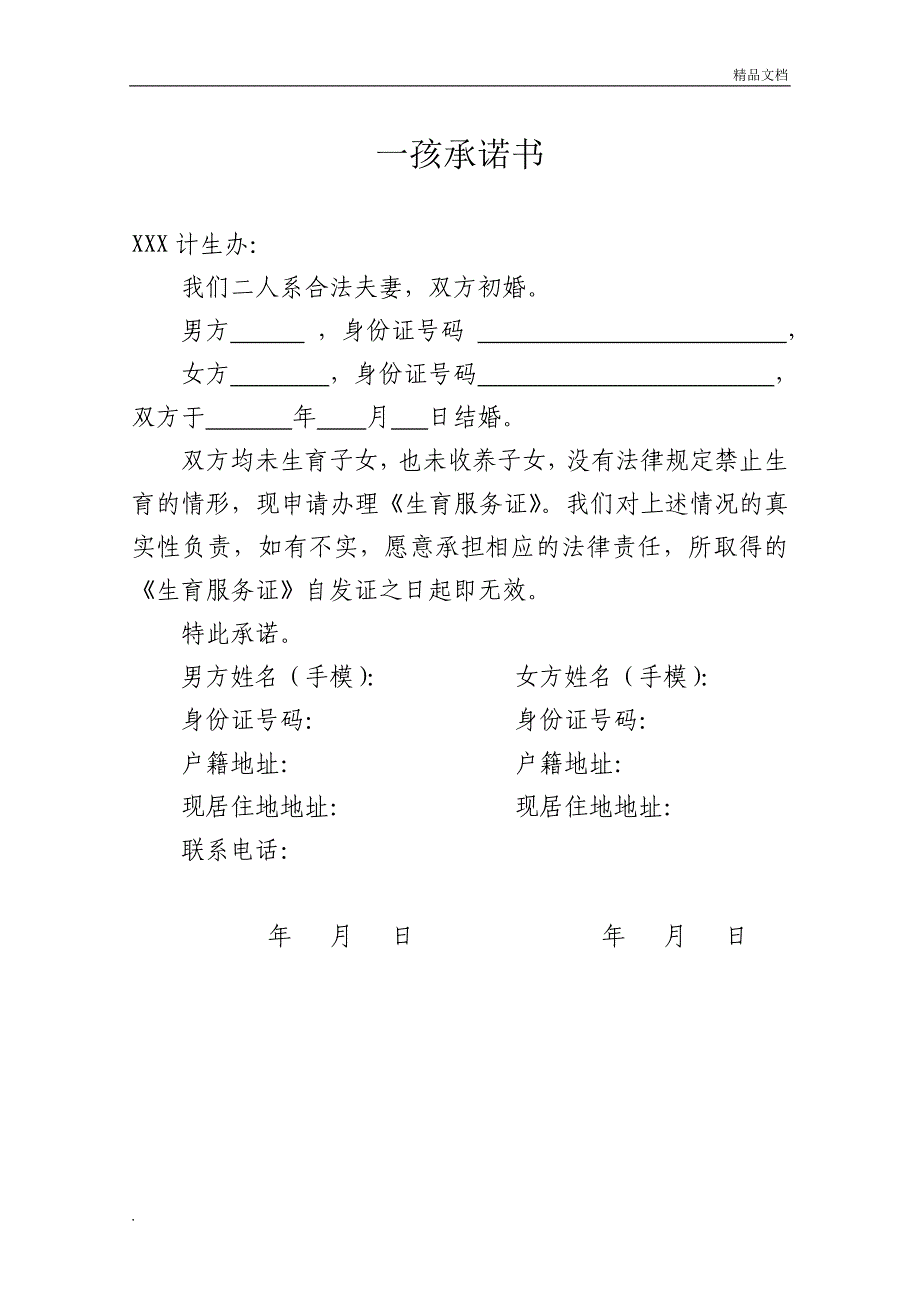 精品文档
一孩承诺书
XXX 计生办:
我们二人系合法夫妻，双方初婚。
男方______ ，身份证号码 _________________________，
女方________，身份证号码________________________，
双方于_______年____月___日结婚。
双方均未生育子女，也未收养子女，没有法律规定禁止生
育的情形，现申请办理《生育服务证》。我们对上述情况的真
实性负责，如有不实，愿意承担相应的法律责任，所取得的
《生育服务证》自发证之日起即无效。
特此承诺。
男方姓名（手模）: 女方姓名（手模）:
身份证号码: 身份证号码:
户籍地址: 户籍地址:
现居住地地址: 现居住地地址:
联系电话:
年 月 日 年 月 日
.